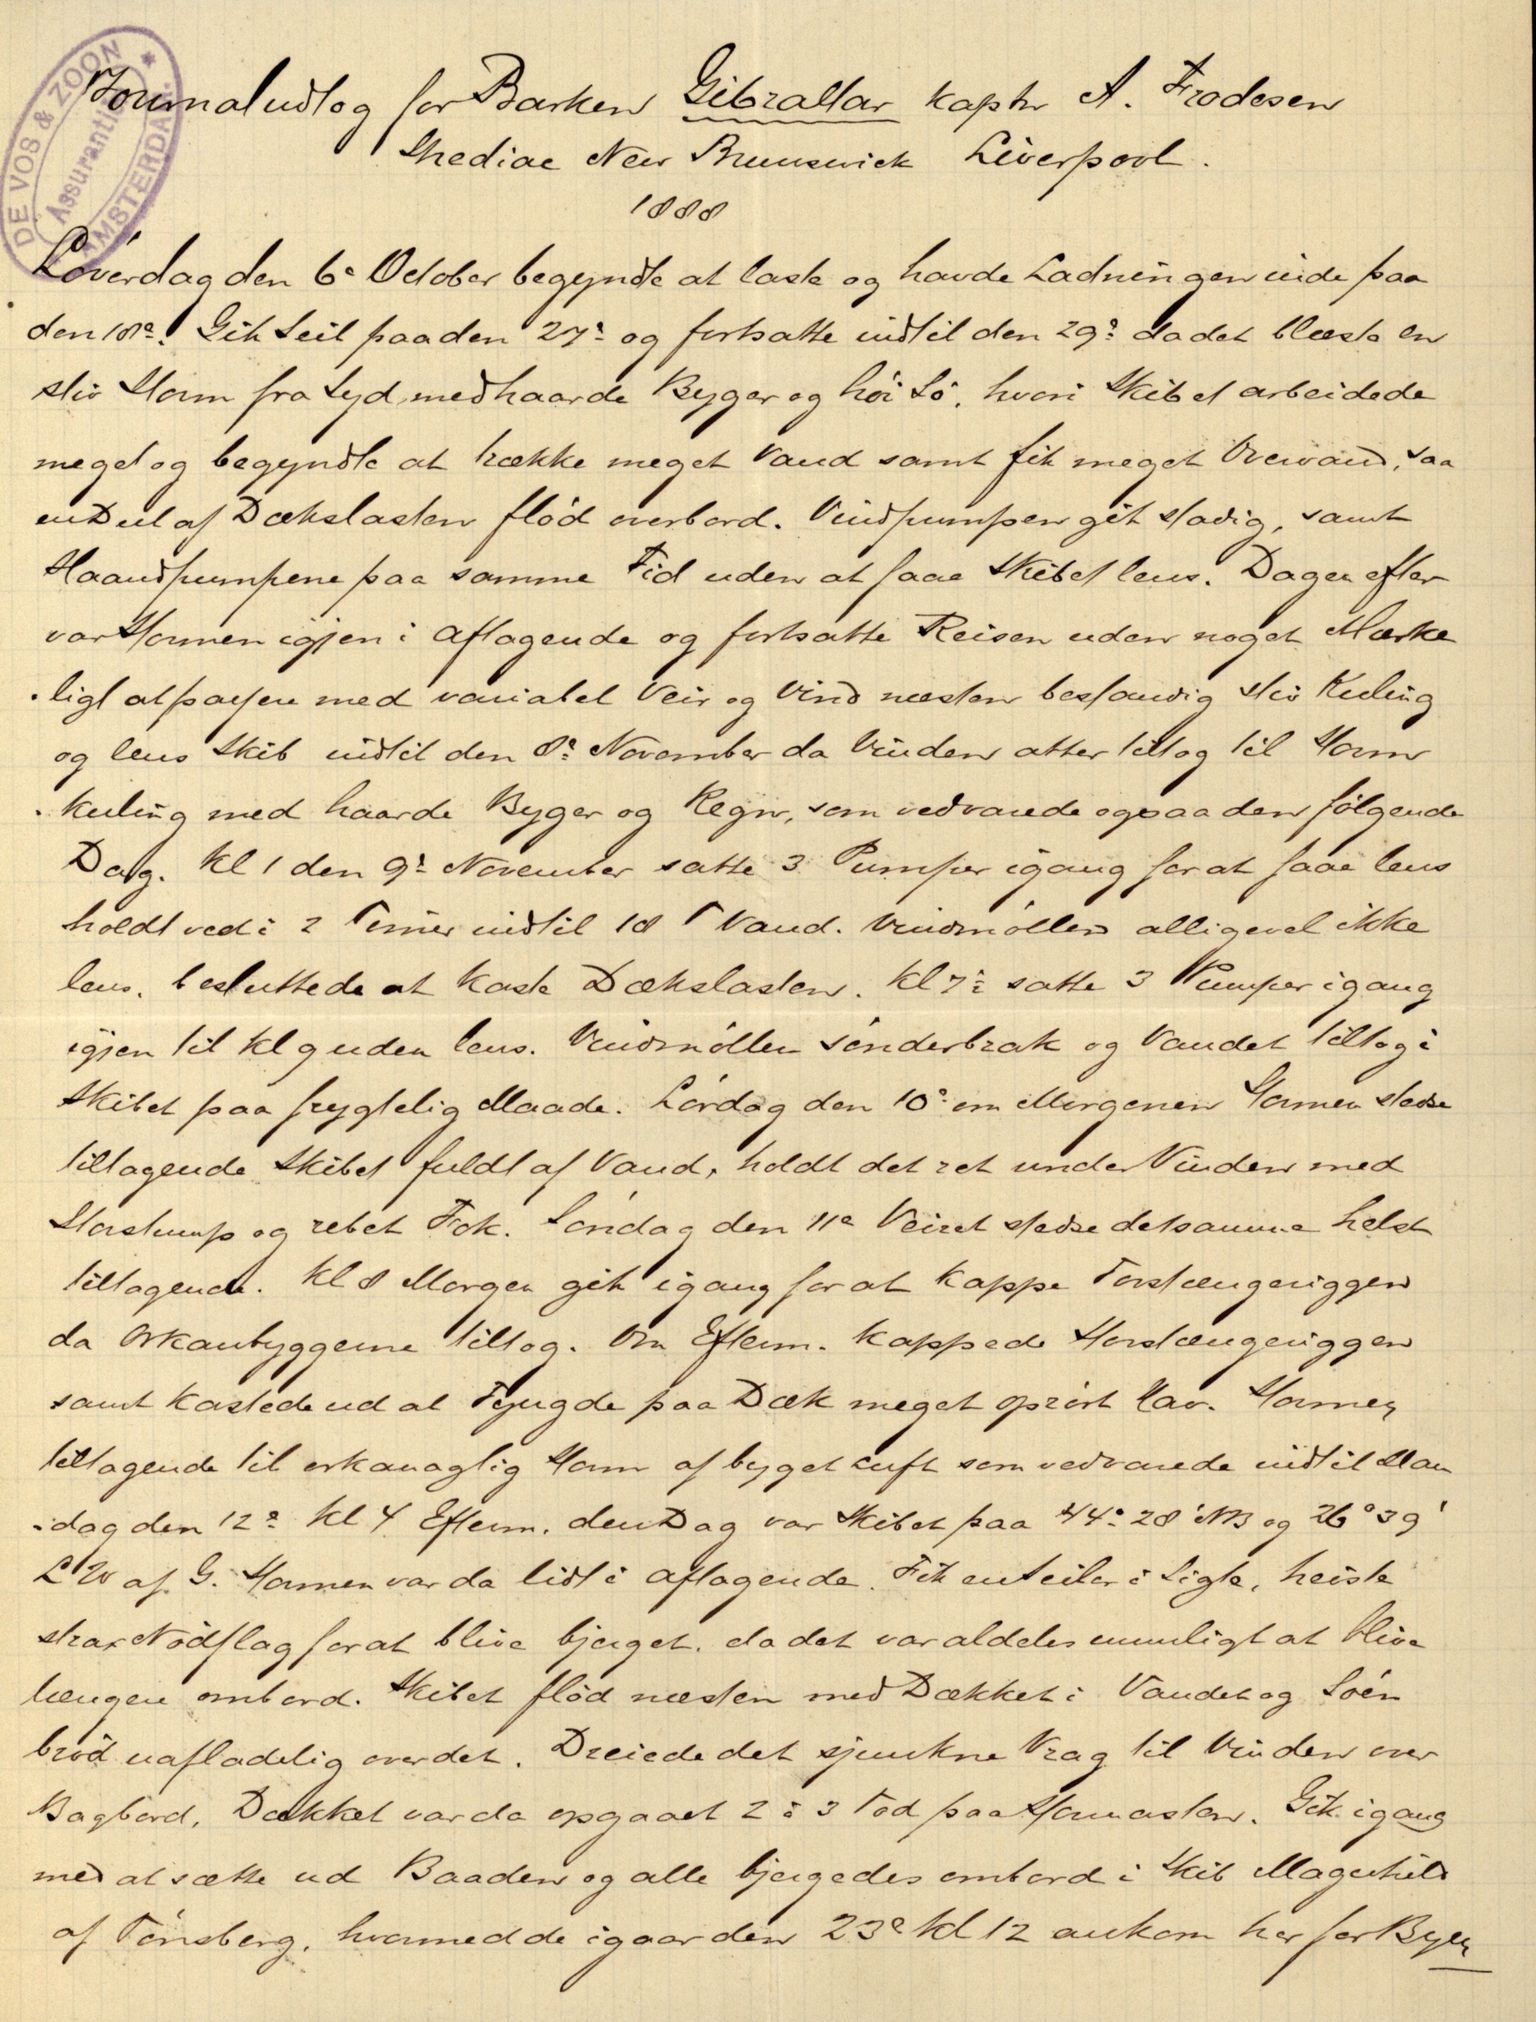 DE VOS & ZOON
Assurantie
AMSTERDAM
Journaludtog for Barken Gibraltar kaptn A. Frodesen
Shediac New Brunswick Liverpool.
1888
Löverdag den 6e October begyndte at laste og havde Ladningen inde paa
den 18e. Gik Seil paa den 27e og fortsatte indtil den 29e da det blæste en
stiv Storm fra Syd med haarde Byger og höi Sö, hvori Skibet arbeidede
meget og begyndte at trække meget Vand samt fik meget Overvand, saa
en Deel af Dækslasten flöd overbord. Vindpumpen gik stadig, samt
Haandpumpene paa samme Tid uden at faae Skibet lens. Dagen efter
var Stormen igjen i aftagende og fortsatte Reisen uden noget Mærke
ligt at passere med variabel Veir og Vind næsten bestandig stiv Kuling
og lens Skib indtil den 8e November da Vinden atter tiltog til Storm
kuling med haarde Byger og Regn, som vedvarede ogsaa den fölgende
Dag. Kl 1 den 9e November satte 3 Pumper igang for at faae lens
holdt ved i 2 Timer indtil 18 " Vand. Vindmöllen alligevel ikke
lens, besluttede at kaste Dækslasten. Kl 7½ satte 3 Pumper igang
igjen til kl 9 uden lens. Vindmöllen sönderbrak og Vandet tiltog i
Skibet paa frygtelig Maade. Lördag den 10e om Morgenen Stormen stedse
tiltagende Skibet fuldt af Vand, holdt det ret under Vinden med
Storstump og rebet Fok. Söndag den 11e Veiret stedse detsamme helst
tiltagende. Kl 8 Morgen gik igang for at kappe Forstængeriggen
da Orkanbyggerne tiltog. Om Efterm. kappede Storstængeriggen
samt kastede ud al Tyngde paa Dæk meget oprört Hav. Stormen
tiltagende til orkanagtig Storm af byget Luft som vedvarede indtil Man
dag den 12e Kl 4 Efterm. den Dag var Skibet paa 44° 28' NB og 26° 39'
L W af G. Stormen var da lidt i aftagende. Fik en Seiler i Sigte, heiste
strax Nödflag for at blive bjerget, da det var aldeles umuligt at blive
længere ombord. Skibet flöd næsten med Dækket i Vandet og Söen
bröd uafladelig over det. Dreiede det sjunkne Vrag til Vinden over
Bagbord, Dækket var da opgaaet 2 à 3 Fod paa Stormasten. Gik igang
med at sætte ud Baaden og alle bjergedes ombord i Skib Magnhild
af Tönsberg, hvormed de igaar den 23e kl 12 ankom her for Byen